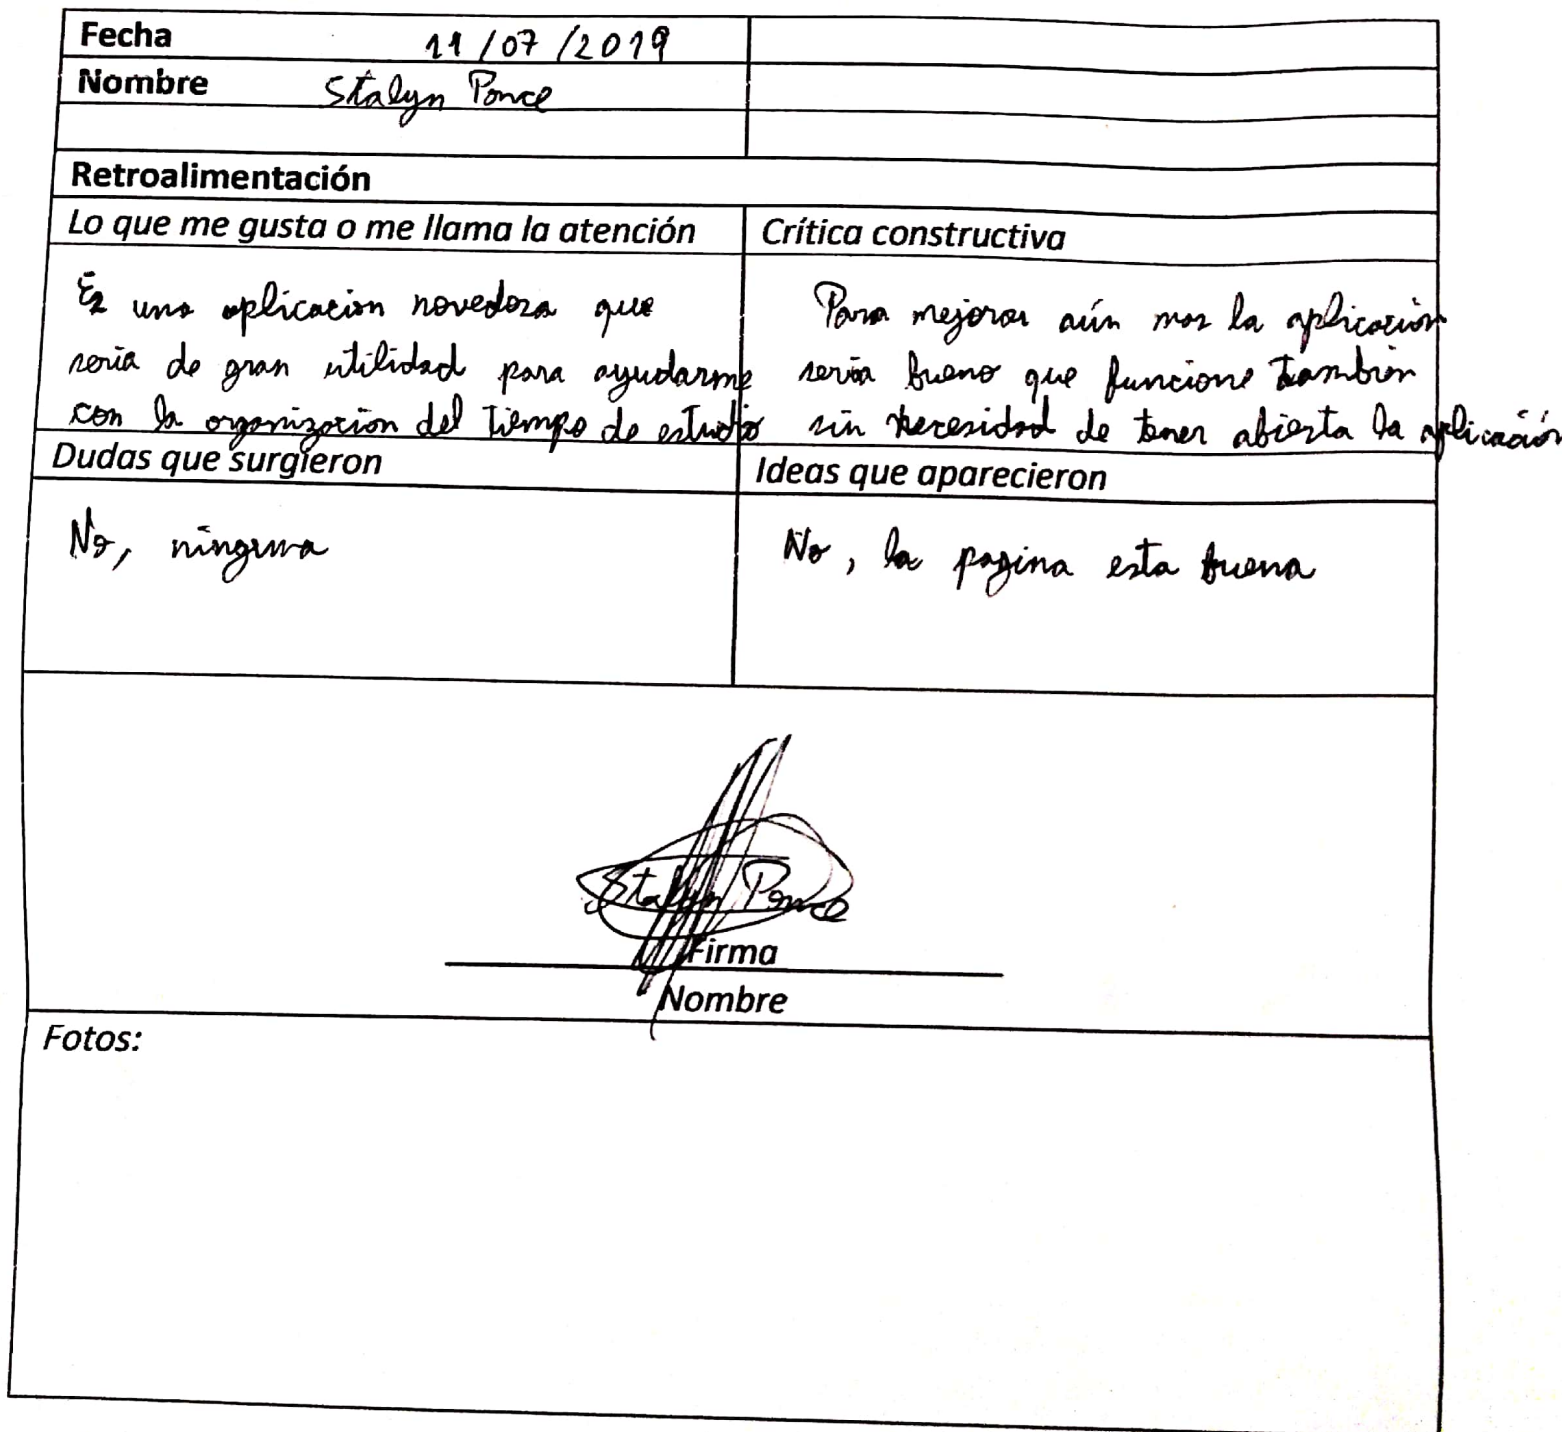 Fecha 11/07/2019
Nombre Stalyn Ponce
Retroalimentación
Lo que me gusta o me llama la atención
Es una aplicacion novedosa que
seria de gran utilidad para ayudarme
con la organización del tiempo de estudio
Crítica constructiva
Para mejorar aún mas la aplicación
seria bueno que funcione tambien
sin necesidad de tener abierta la aplicación
Dudas que surgieron
No, ninguna
Ideas que aparecieron
No, la pagina esta buena
Stalyn Ponce
Firma
Nombre
Fotos: